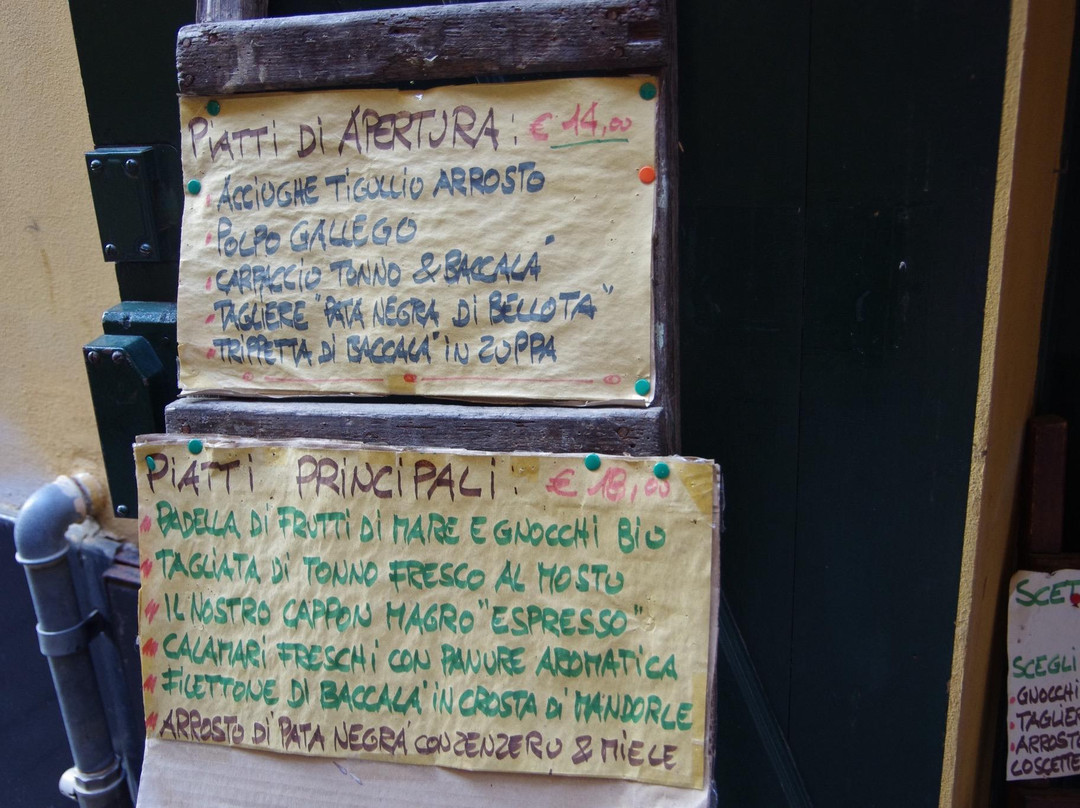 PIATTI DI APERTURA: € 14,00
ACCIUGHE TIGULLIO ARROSTO
POLPO GALLEGO
CARPACCIO TONNO & BACCALÀ
TAGLIERE "PATA NEGRA DI BELLOTA"
TRIPPETTA DI BACCALÀ IN ZUPPA
PIATTI PRINCIPALI: € 18,00
PADELLA DI FRUTTI DI MARE E GNOCCHI BIO
TAGLIATA DI TONNO FRESCO AL MOSTO
IL NOSTRO CAPPON MAGRO "ESPRESSO"
CALAMARI FRESCHI CON PANURE AROMATICA
FILETTONE DI BACCALÀ IN CROSTA DI MANDORLE
ARROSTO DI PATA NEGRA CON ZENZERO & MIELE
SCET
SCEGLI
GNOCCHI
TAGLIER
ARROSTO
COSCETTE